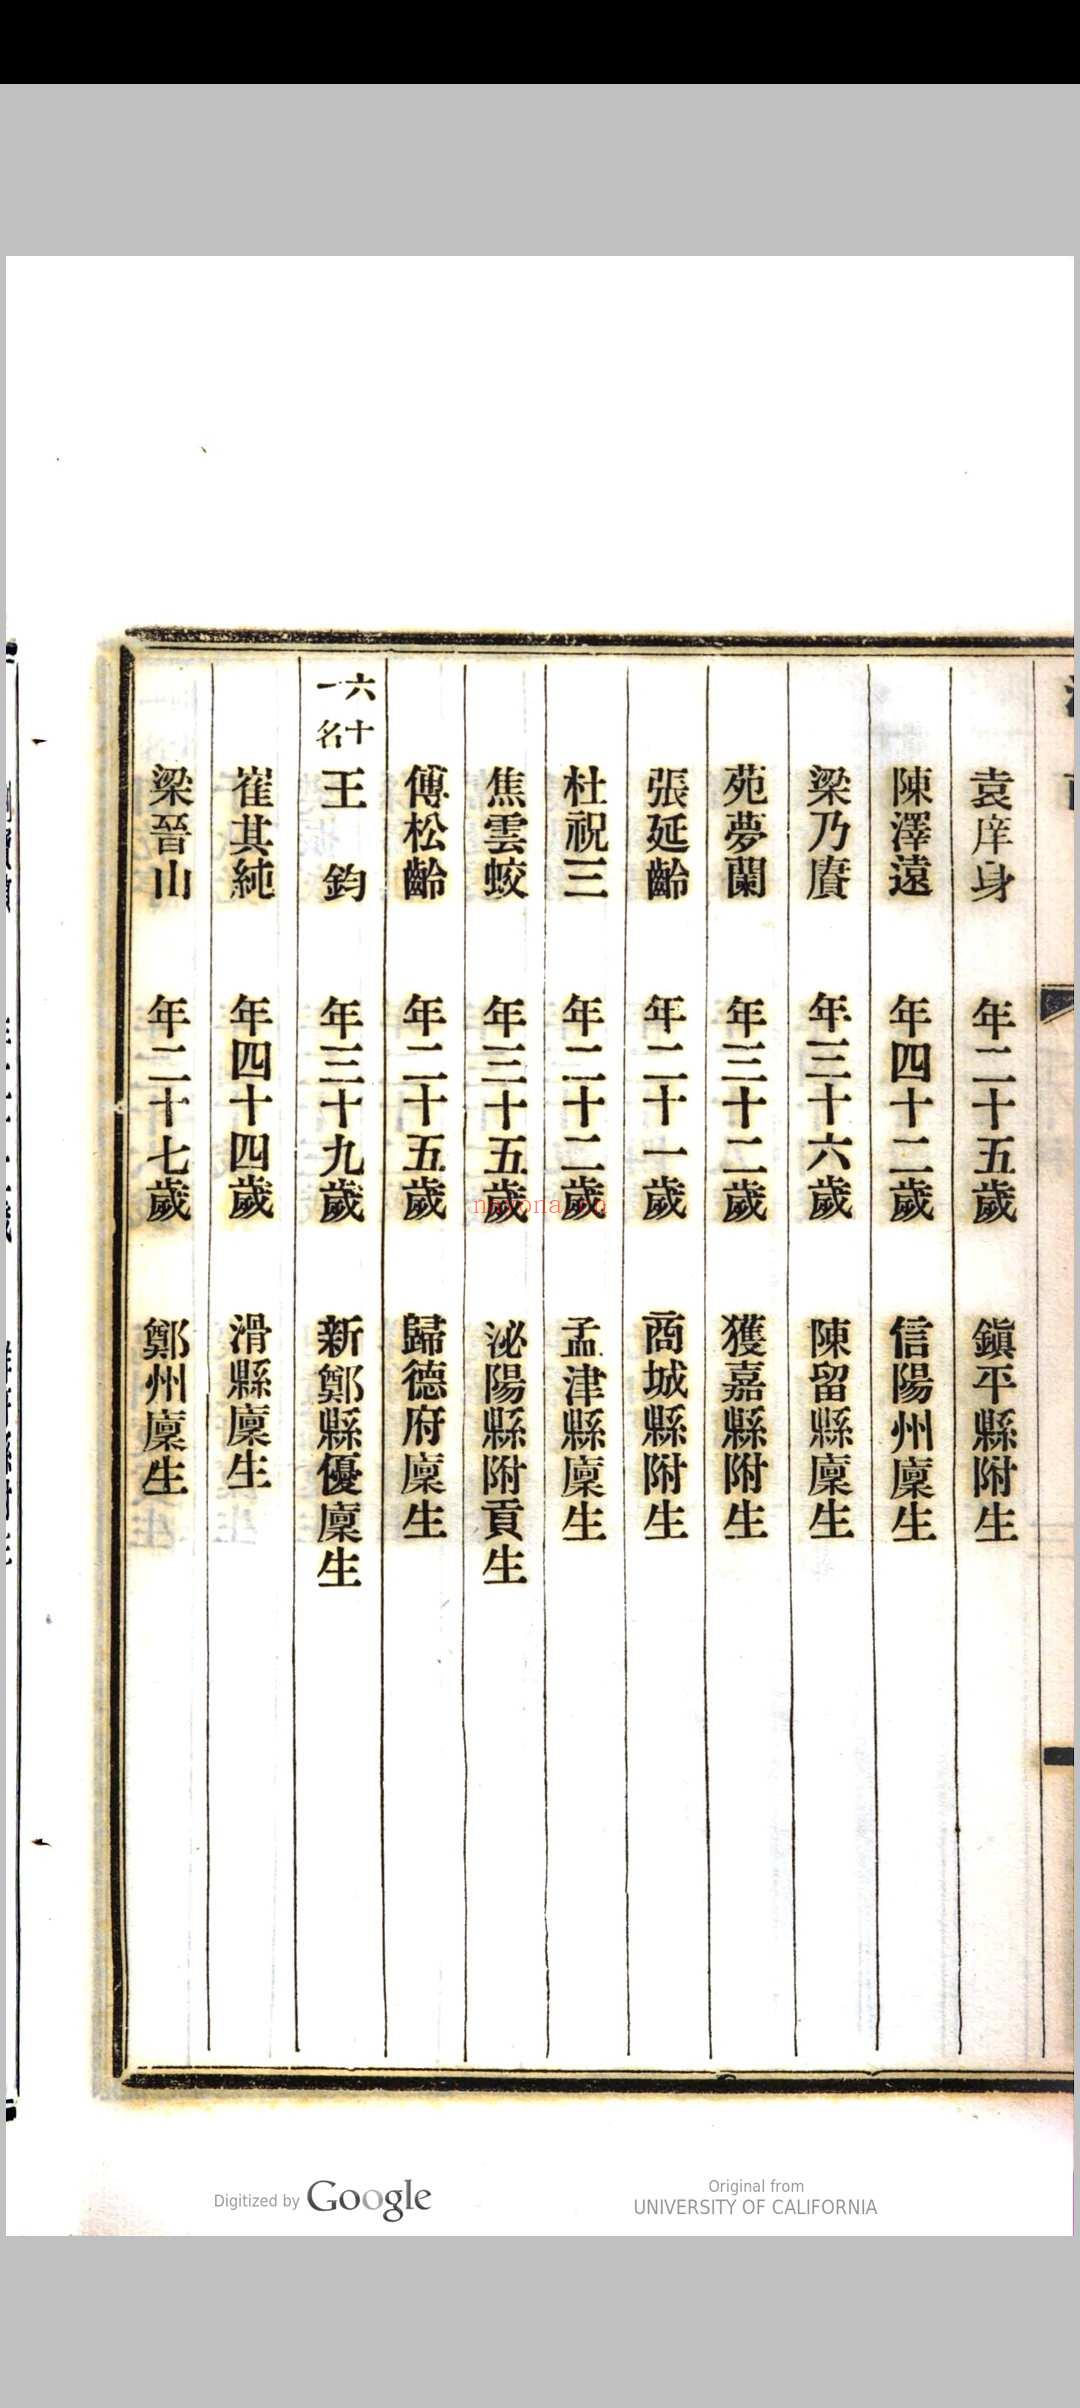 袁庠身 年二十五歲 鎮平縣附生
陳澤遠 年四十二歲 信陽州廩生
梁乃賡 年三十六歲 陳留縣廩生
苑夢蘭 年三十二歲 獲嘉縣附生
張延齡 年二十一歲 商城縣附生
杜祝三 年二十二歲 孟津縣廩生
焦雲蛟 年三十五歲 泌陽縣附貢生
傅松齡 年二十五歲 歸德府廩生
六十一名 王鈞 年三十九歲 新鄭縣優廩生
崔其純 年四十四歲 滑縣廩生
梁晉山 年二十七歲 鄭州廩生
nayona.cn
Digitized by Google
Original from
UNIVERSITY OF CALIFORNIA